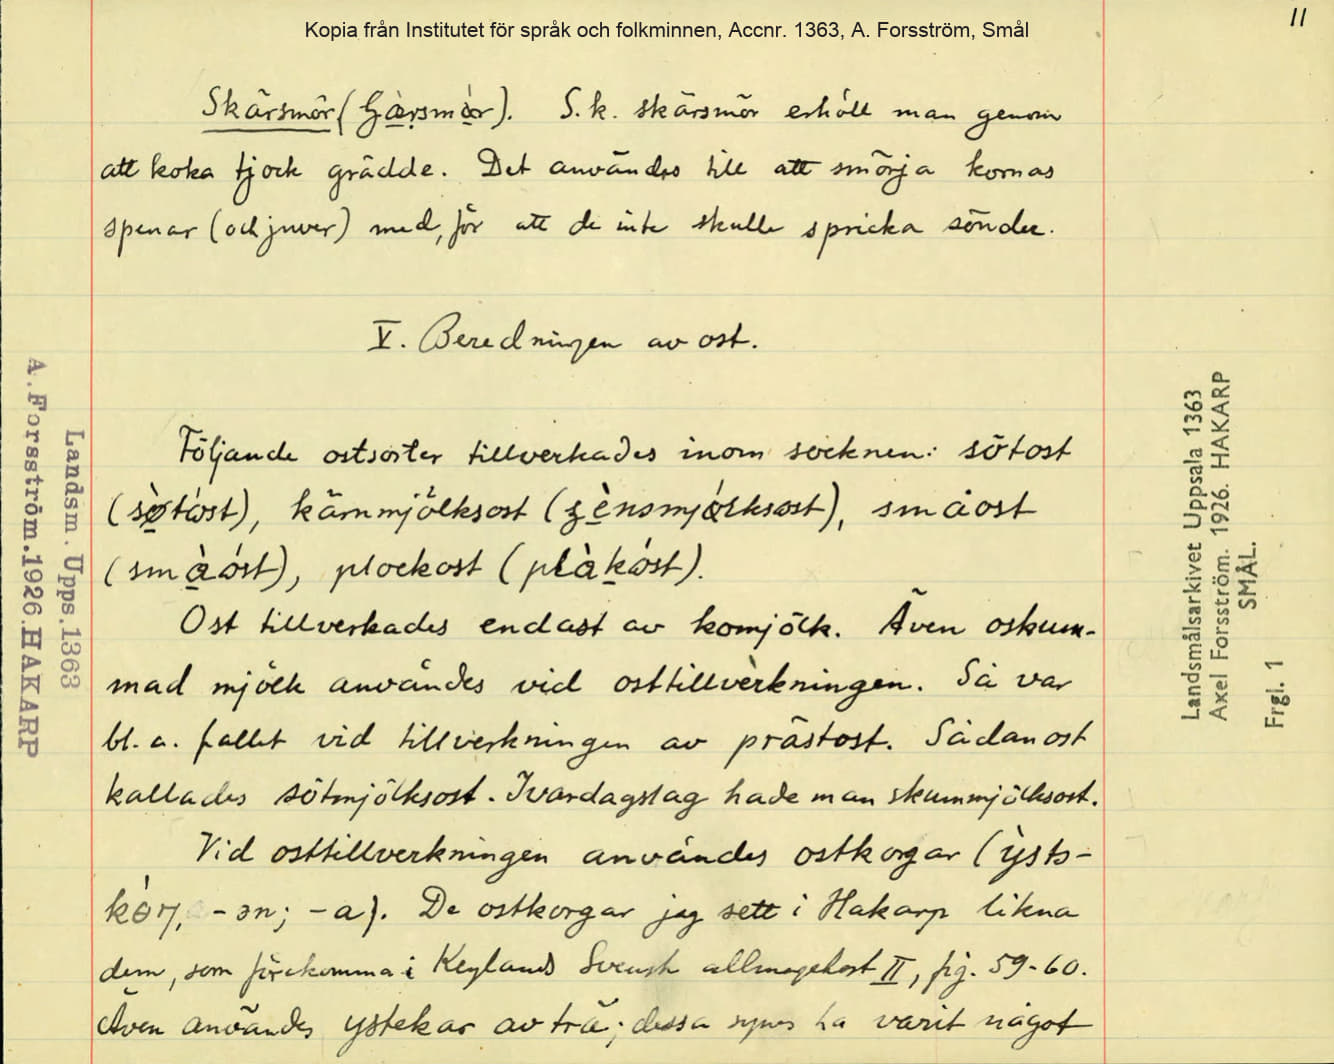 Kopia från Institutet för språk och folkminnen, Accnr. 1363, A. Forsström, Smål
11
Skärsmör. S.k. skärsmör erhöll man genom
att koka tjock grädde. Det användes till att smörja kornas
spenar (och juver) med, för att de inte skulle spricka sönder.
V. Beredningen av ost.
Följande ostsorter tillverkades inom socknen: sötost
(sø̀tóst), kärnmjölksost, småost
(smàóst), plockost (plàkóst).
Ost tillverkades endast av komjölk. Även oskum-
mad mjölk användes vid osttillverkningen. Så var
bl. a. fallet vid tillverkningen av prästost. Sådan ost
kallades sötmjölksost. I vardagslag hade man skummjölksost.
Vid osttillverkningen användes ostkorgar (ỳsts-
-ən; -a). De ostkorgar jag sett i Hakarp likna
dem, som förekomma i Keylands Svensk allmogekost II, fig. 59-60.
Även användes ystekar av trä; dessa synes ha varit något
A. Forsström. 1926. HAKARP
Landsm. Upps. 1363
Landsmålsarkivet Uppsala 1363
Axel Forsström. 1926. HAKARP
SMÅL.
Frgl. 1